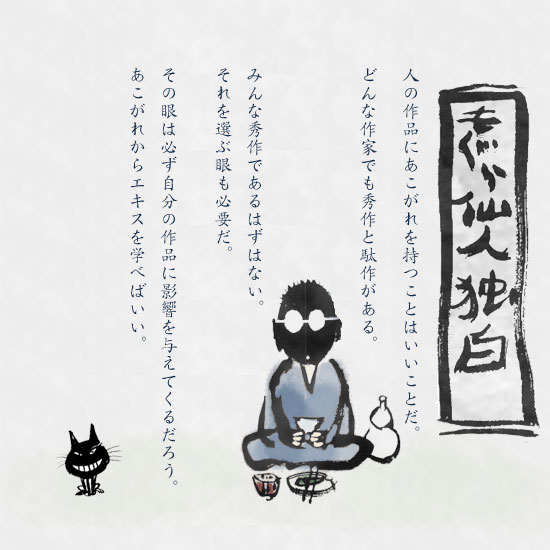 仙人独白
人の作品にあこがれを持つことはいいことだ。
どんな作家でも秀作と駄作がある。
みんな秀作であるはずはない。
それを選ぶ眼も必要だ。
その眼は必ず自分の作品に影響を与えてくるだろう。
あこがれからエキスを学べばいい。